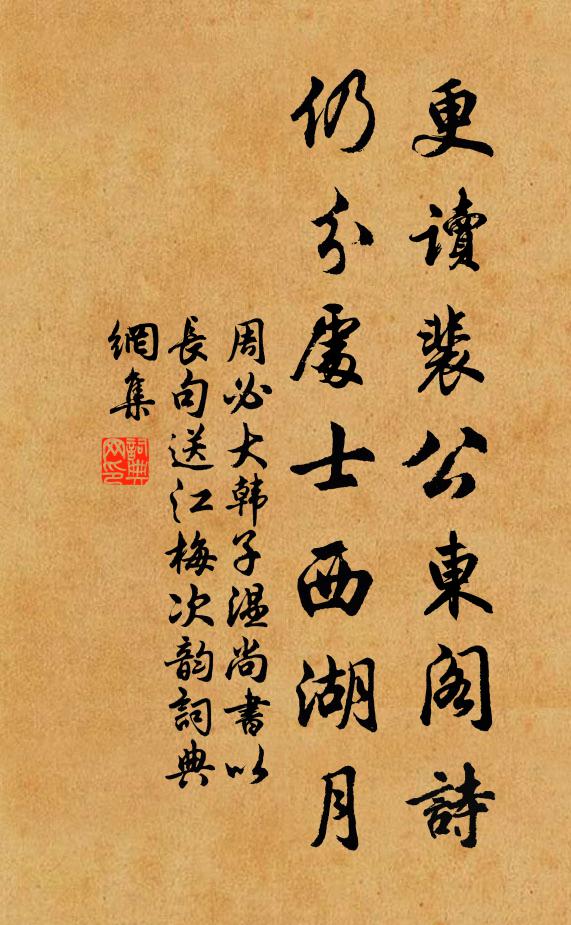 更讀裴公東閣詩
仍分處士西湖月
周必大韩子温尚書以
長句送江梅次韵詞典
網集
詞典网印